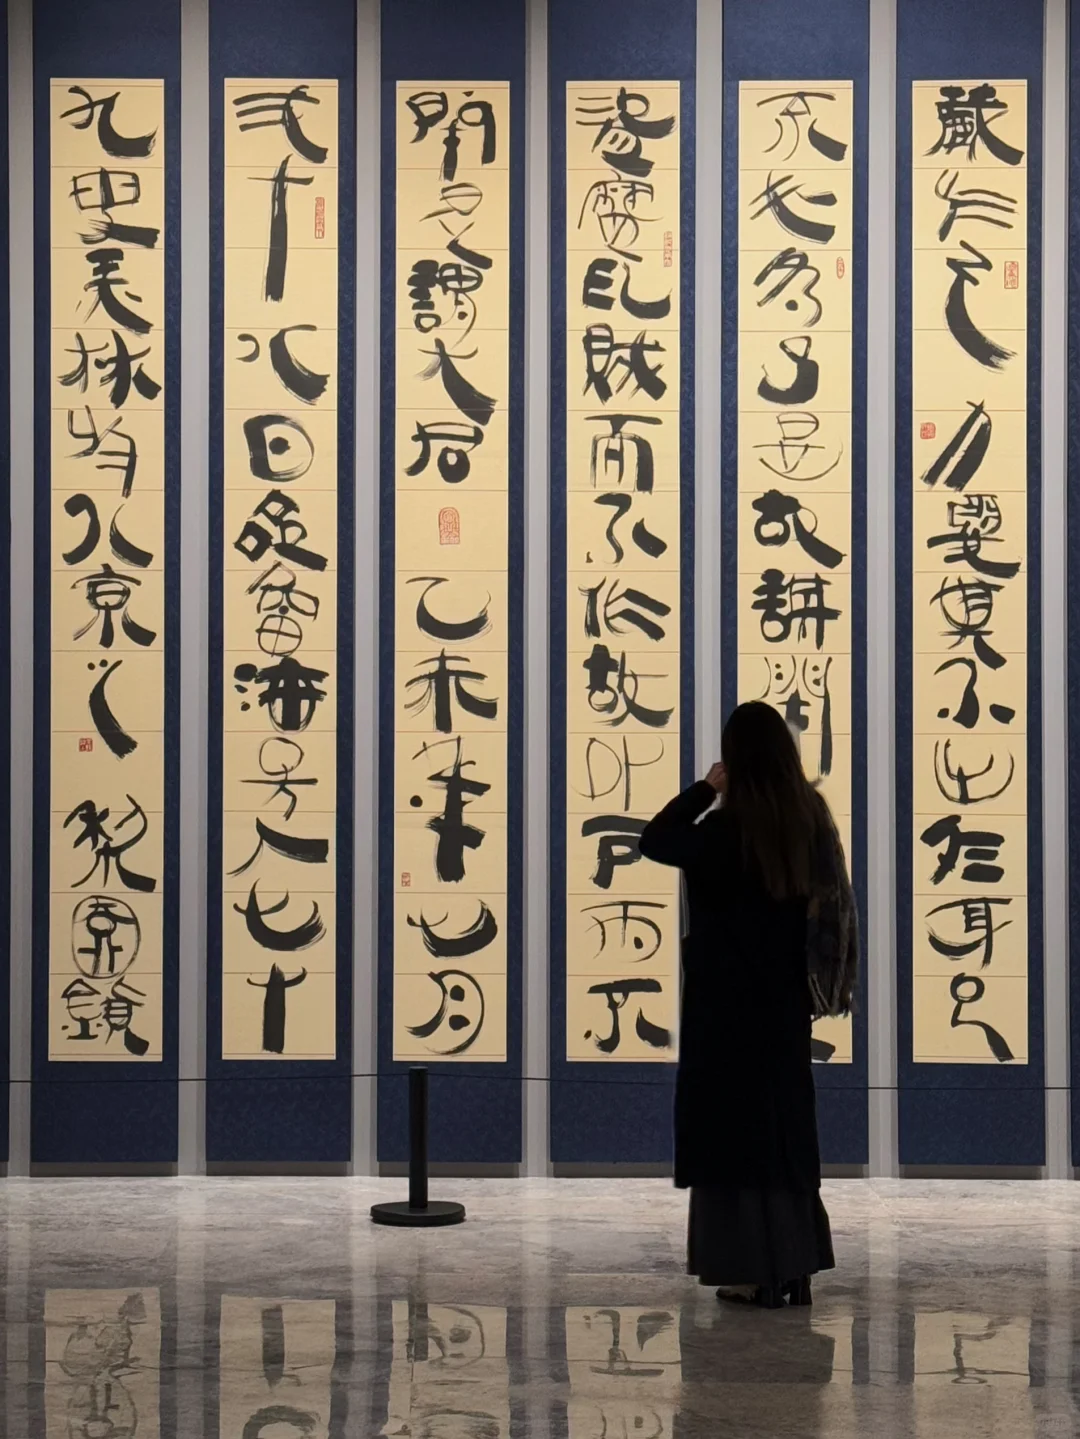 藏於己力惡其不出於身也
不必為己是故謀閉
盜竊亂賊而不作故外戶而不
閉是謂大同 乙未年七月
弍十八日齊魯海右人七十
九叟美林於北京之 梨園鎮